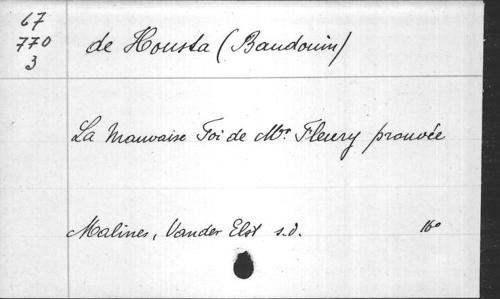 67
770
3
de Housta (Baudouin)
La Mauvaise Foi de Mr. Fleury prouvée
Malines, Vander Elst s.d. 16°